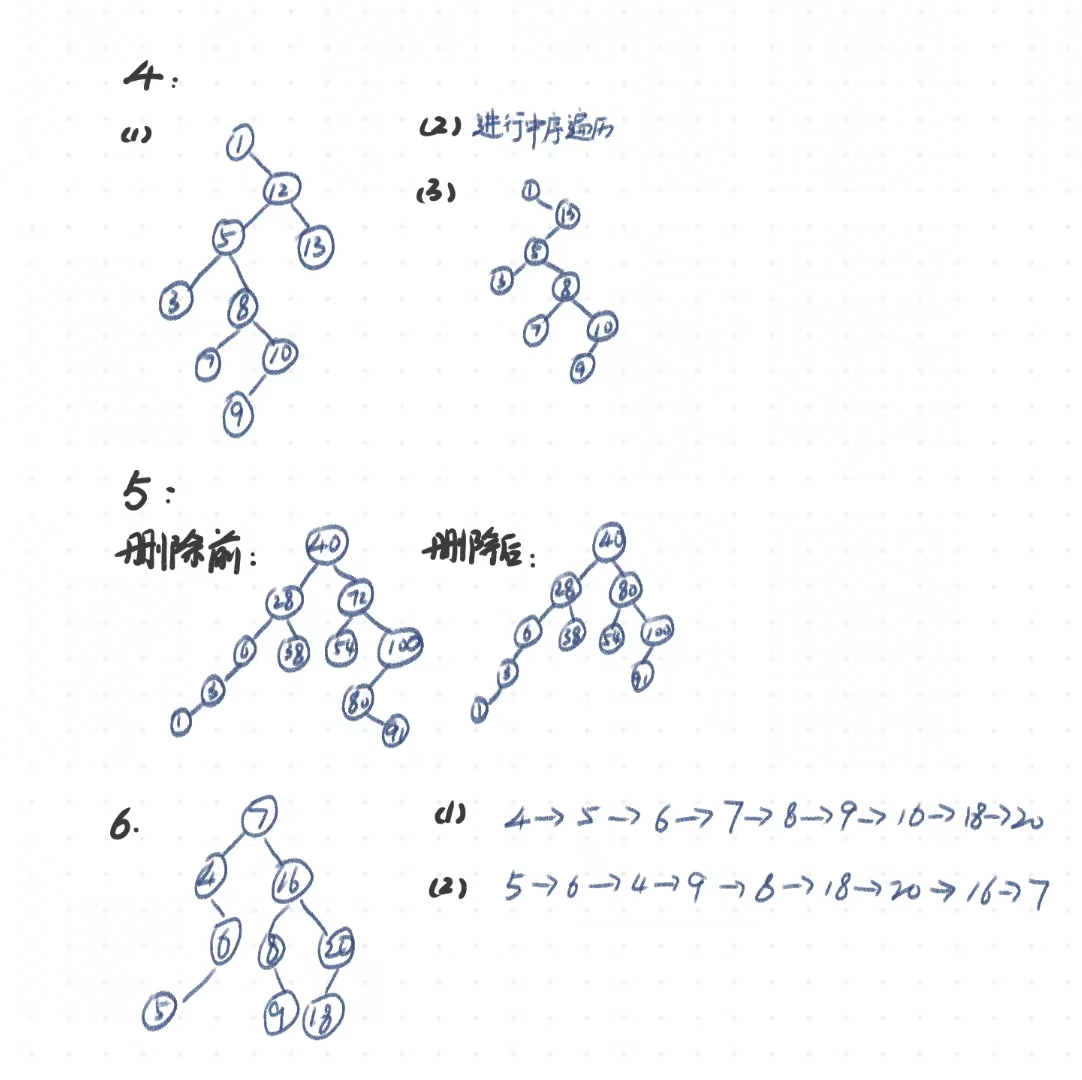 4:
(1)
1
12
5 13
3 8
7 10
9
(2) 进行中序遍历
(3)
1
13
5
3 8
7 10
9
5:
删除前:
40
28 72
6 38 54 100
3 80
1 91
删除后:
40
28 80
6 38 54 100
3 91
1
6.
7
4 16
6 8 20
5 9 18
(1) 4→5→6→7→8→9→16→18→20
(2) 5→6→4→9→8→18→20→16→7